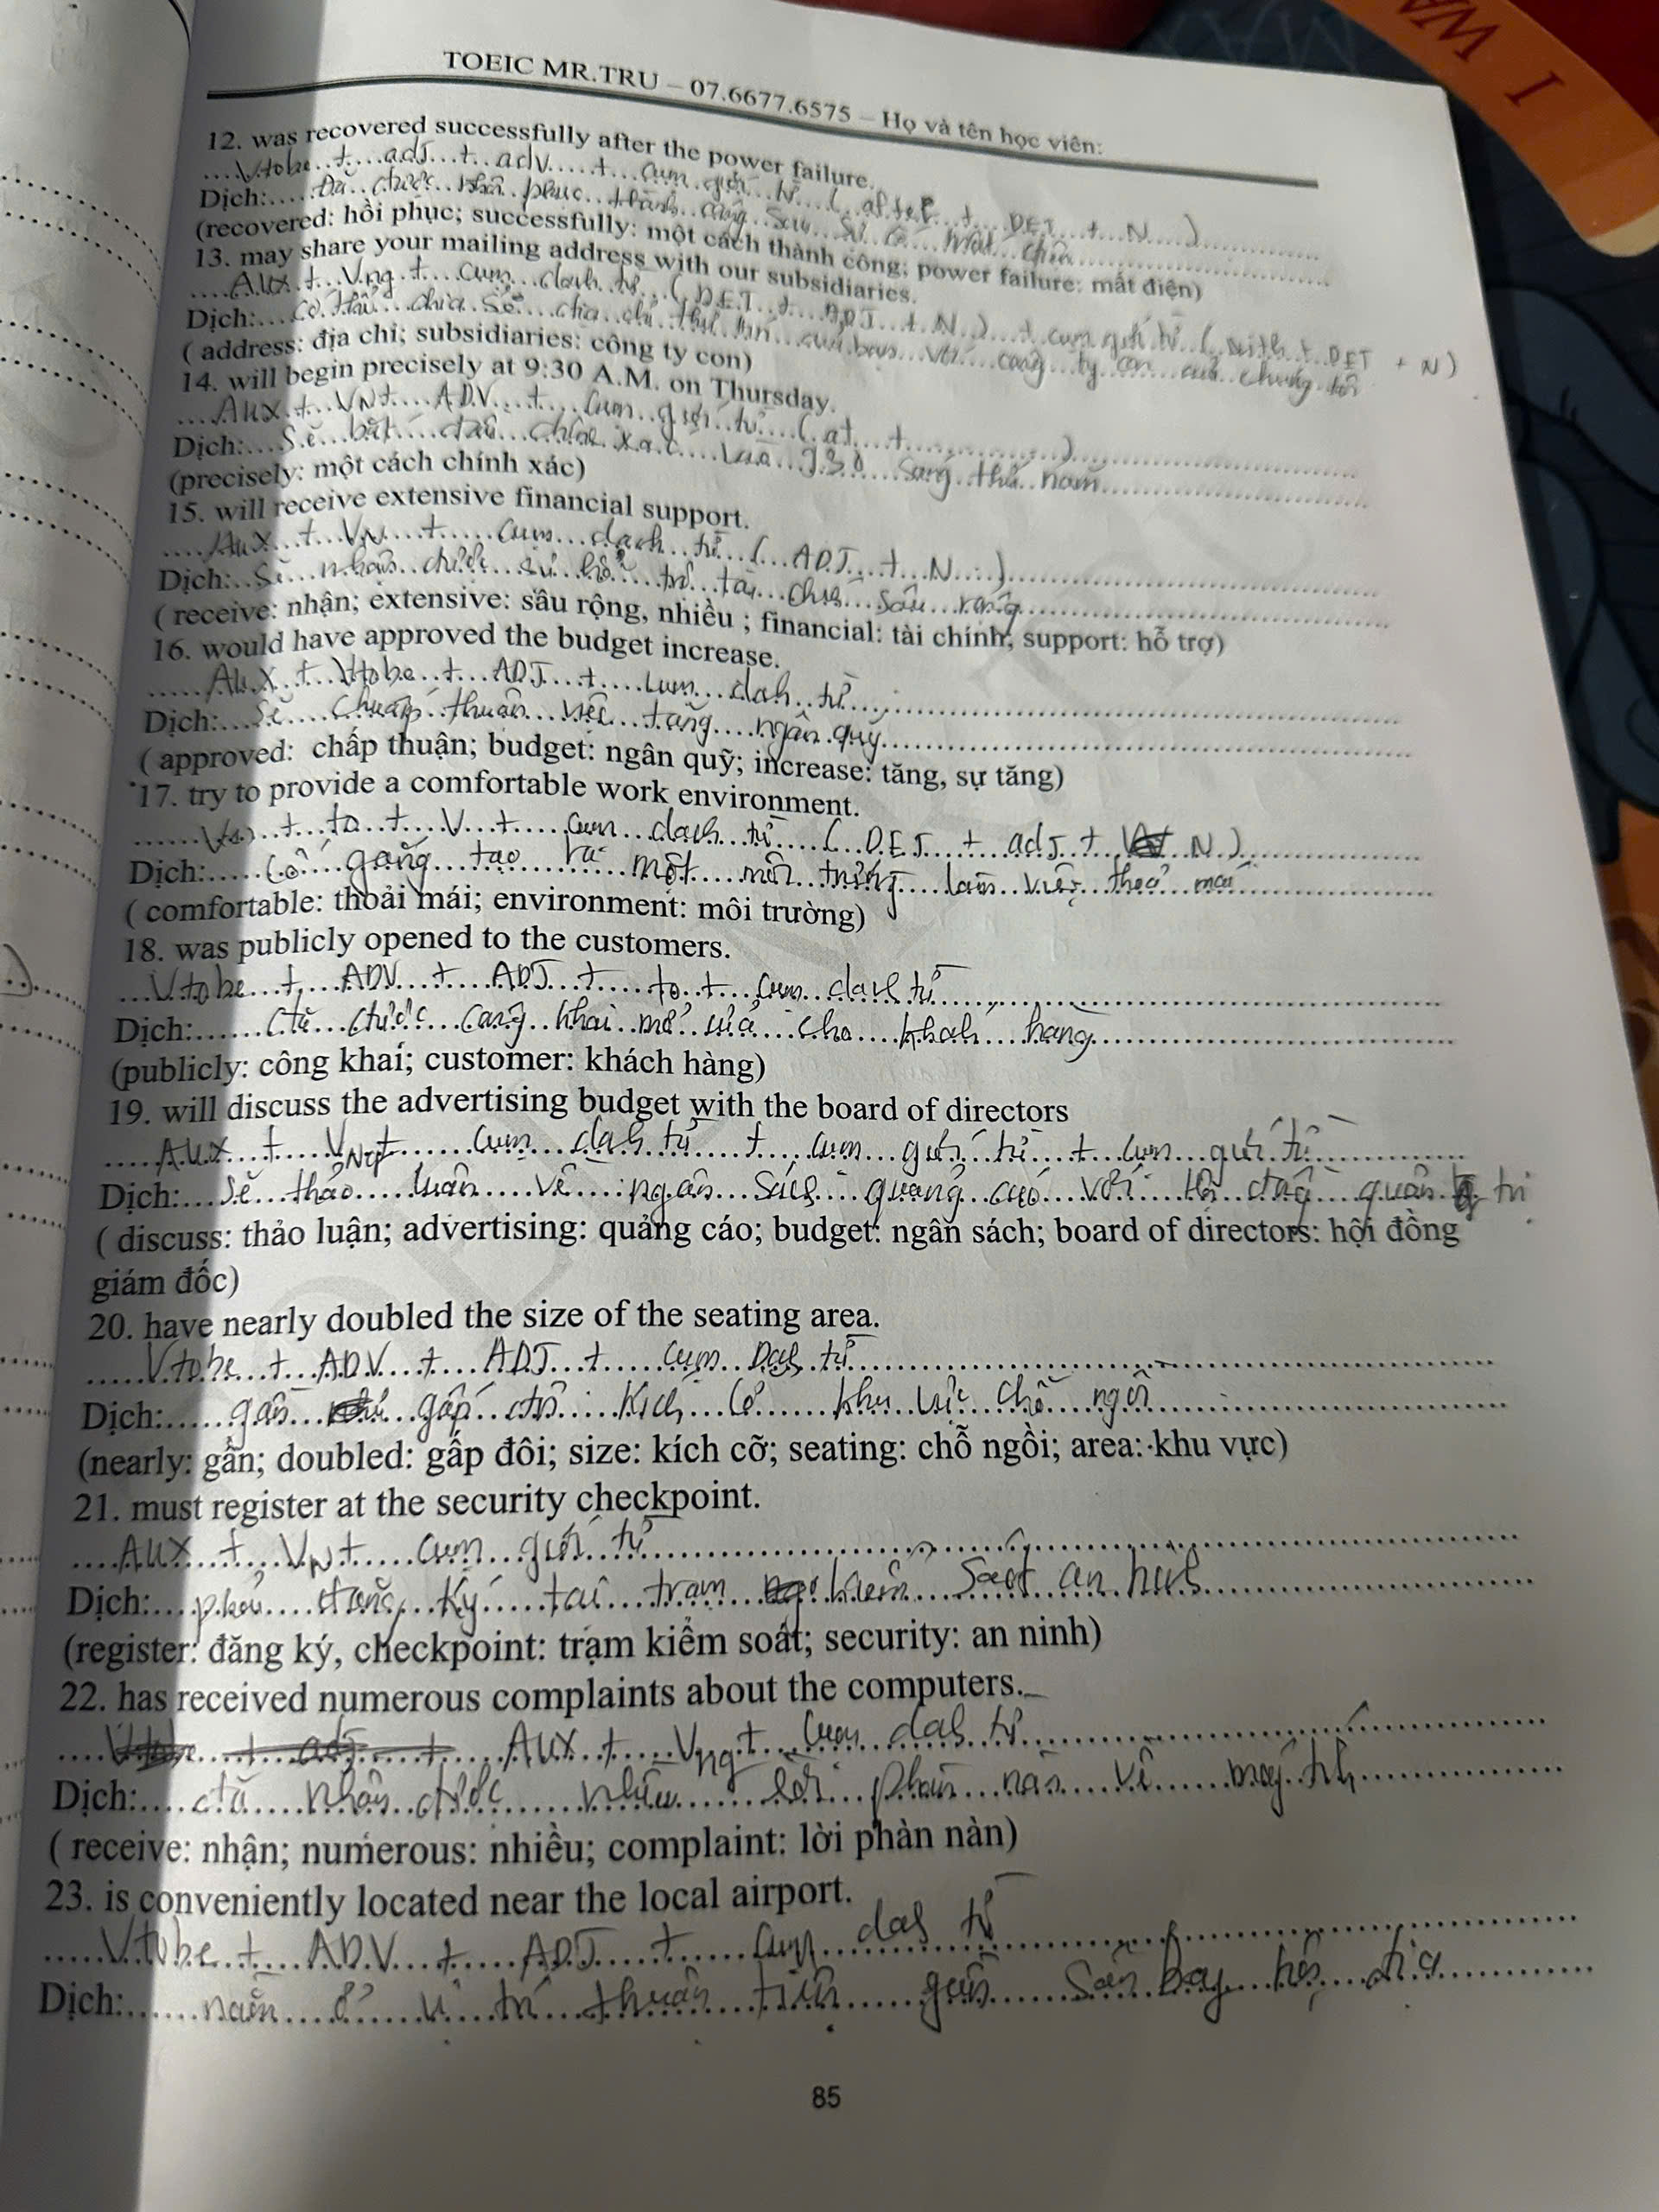 I WA
TOEIC MR.TRU – 07.6677.6575 – Họ và tên học viên:
12. was recovered successfully after the power failure.
Vtobe + adj + adv + cụm giới từ ( after + DET + N )
Dịch: Đã được khôi phục thành công sau sự cố mất điện
(recovered: hồi phục; successfully: một cách thành công; power failure: mất điện)
13. may share your mailing address with our subsidiaries.
AUX + Vng + cụm danh từ ( DET + ADJ + N ) + cụm giới từ ( with + DET + N )
Dịch: Có thể chia sẻ địa chỉ thư của bạn với công ty con của chúng tôi
( address: địa chỉ; subsidiaries: công ty con)
14. will begin precisely at 9:30 A.M. on Thursday.
AUX + VN + ADV + cụm giới từ ( at + )
Dịch: Sẽ bắt đầu chính xác vào 9.30 sáng thứ năm
(precisely: một cách chính xác)
15. will receive extensive financial support.
AUX + VN + cụm danh từ ( ADJ + N )
Dịch: Sẽ nhận được sự hỗ trợ tài chính sâu rộng
( receive: nhận; extensive: sâu rộng, nhiều ; financial: tài chính; support: hỗ trợ)
16. would have approved the budget increase.
AUX + Vtobe + ADJ + cụm danh từ
Dịch: Sẽ chấp thuận việc tăng ngân quỹ
( approved: chấp thuận; budget: ngân quỹ; increase: tăng, sự tăng)
17. try to provide a comfortable work environment.
+ to + V + cụm danh từ ( DET + adj + N )
Dịch: Cố gắng tạo ra một môi trường làm việc thoải mái
( comfortable: thoải mái; environment: môi trường)
18. was publicly opened to the customers.
Vtobe + ADV + ADJ + to + cụm danh từ
Dịch: đã được công khai mở cửa cho khách hàng
(publicly: công khai; customer: khách hàng)
19. will discuss the advertising budget with the board of directors
AUX + VNg + cụm danh từ + cụm giới từ + cụm giới từ
Dịch: Sẽ thảo luận về ngân sách quảng cáo với hội đồng quản trị
( discuss: thảo luận; advertising: quảng cáo; budget: ngân sách; board of directors: hội đồng
giám đốc)
20. have nearly doubled the size of the seating area.
Vtobe + ADV + ADJ + cụm Danh từ
Dịch: gần gấp đôi kích cỡ khu vực chỗ ngồi
(nearly: gần; doubled: gấp đôi; size: kích cỡ; seating: chỗ ngồi; area: khu vực)
21. must register at the security checkpoint.
AUX + VN + cụm giới từ
Dịch: phải đăng ký tại trạm soát an ninh
(register: đăng ký, checkpoint: trạm kiểm soát; security: an ninh)
22. has received numerous complaints about the computers.
AUX + Vng + cụm danh từ
Dịch: đã nhận được nhiều lời phàn nàn về máy tính
( receive: nhận; numerous: nhiều; complaint: lời phàn nàn)
23. is conveniently located near the local airport.
Vtobe + ADV + ADJ + cụm danh từ
Dịch: nằm ở vị trí thuận tiện gần sân bay địa
85